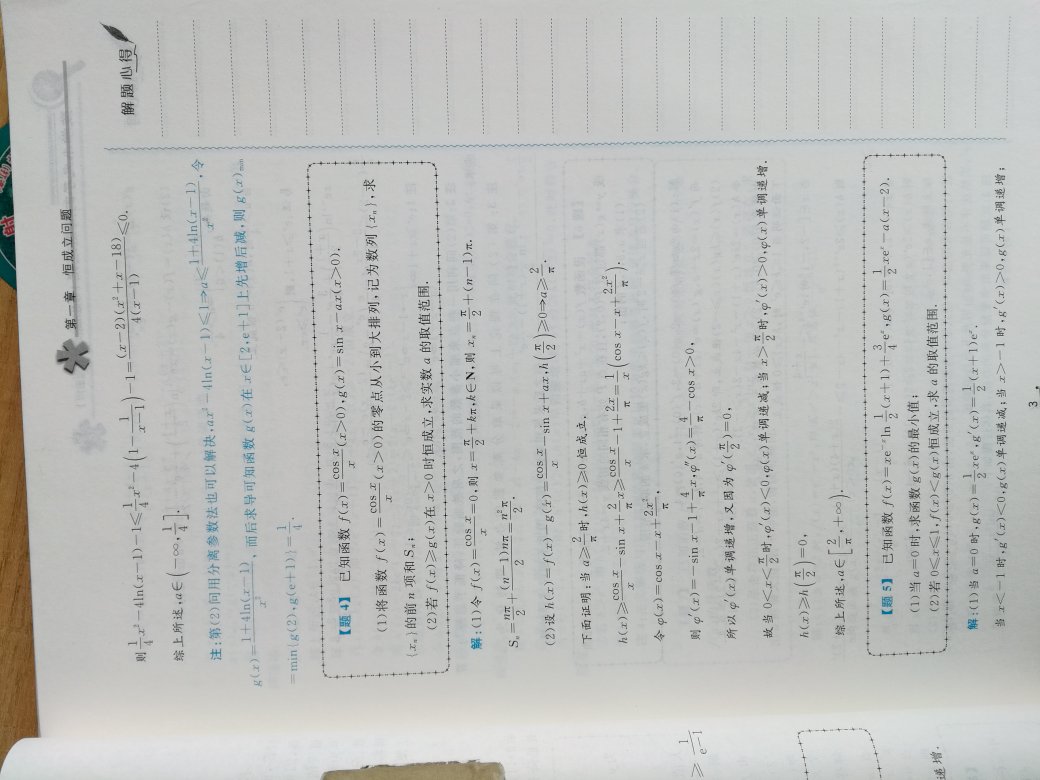 第一章 恒成立问题
解题心得
则\frac{1}{4}x²-4ln(x-1)-1≤\frac{1}{4}x²-4(1-\frac{1}{x-1})-1=\frac{(x-2)(x²+x-18)}{4(x-1)}≤0.
综上所述,a∈(-∞,\frac{1}{4}].
注:第(2)问用分离参数法也可以解决,ax²-4ln(x-1)≤1⇒a≤\frac{1+4ln(x-1)}{x²},令
g(x)=\frac{1+4ln(x-1)}{x²},而后求导可知函数g(x)在x∈[2,e+1]上先增后减,则g(x)min
=min{g(2),g(e+1)}=\frac{1}{4}
【题4】 已知函数f(x)=\frac{cos x}{x}(x>0),g(x)=sin x-ax(x>0).
(1)将函数f(x)=\frac{cos x}{x}(x>0)的零点从小到大排列,记为数列{xₙ},求
{xₙ}的前n项和Sₙ;
(2)若f(x)≥g(x)在x>0时恒成立,求实数a的取值范围.
解:(1)令f(x)=\frac{cos x}{x}=0,则x=\frac{π}{2}+kπ,k∈N,则xₙ=\frac{π}{2}+(n-1)π.
Sₙ=\frac{nπ}{2}+\frac{(n-1)nπ}{2}=\frac{n²π}{2}.
(2)设h(x)=f(x)-g(x)=\frac{cos x}{x}-sin x+ax,h(\frac{π}{2})≥0⇒a≥\frac{2}{π}.
下面证明:当a≥\frac{2}{π}时,h(x)≥0恒成立.
h(x)≥\frac{cos x}{x}-sin x+\frac{2}{π}x≥\frac{cos x}{x}-1+\frac{2x}{π}=\frac{1}{x}(cos x-x+\frac{2x²}{π}).
令φ(x)=cos x-x+\frac{2x²}{π},
则φ′(x)=-sin x-1+\frac{4}{π}x,φ″(x)=\frac{4}{π}-cos x>0,
所以φ′(x)单调递增,又因为φ′(\frac{π}{2})=0,
故当0<x<\frac{π}{2}时,φ′(x)<0,φ(x)单调递减;当x>\frac{π}{2}时,φ′(x)>0,φ(x)单调递增.
h(x)≥h(\frac{π}{2})=0,
综上所述,a∈[\frac{2}{π},+∞).
【题5】 已知函数f(x)=xe⁻ˣln\frac{1}{2}(x+1)+\frac{3}{4}eˣ,g(x)=\frac{1}{2}xeˣ-a(x-2).
(1)当a=0时,求函数g(x)的最小值;
(2)若0≤x≤1,f(x)<g(x)恒成立,求a的取值范围.
解:(1)当a=0时,g(x)=\frac{1}{2}xeˣ,g′(x)=\frac{1}{2}(x+1)eˣ.
当x<-1时,g′(x)<0,g(x)单调递减;当x>-1时,g′(x)>0,g(x)单调递增;
3
递增.